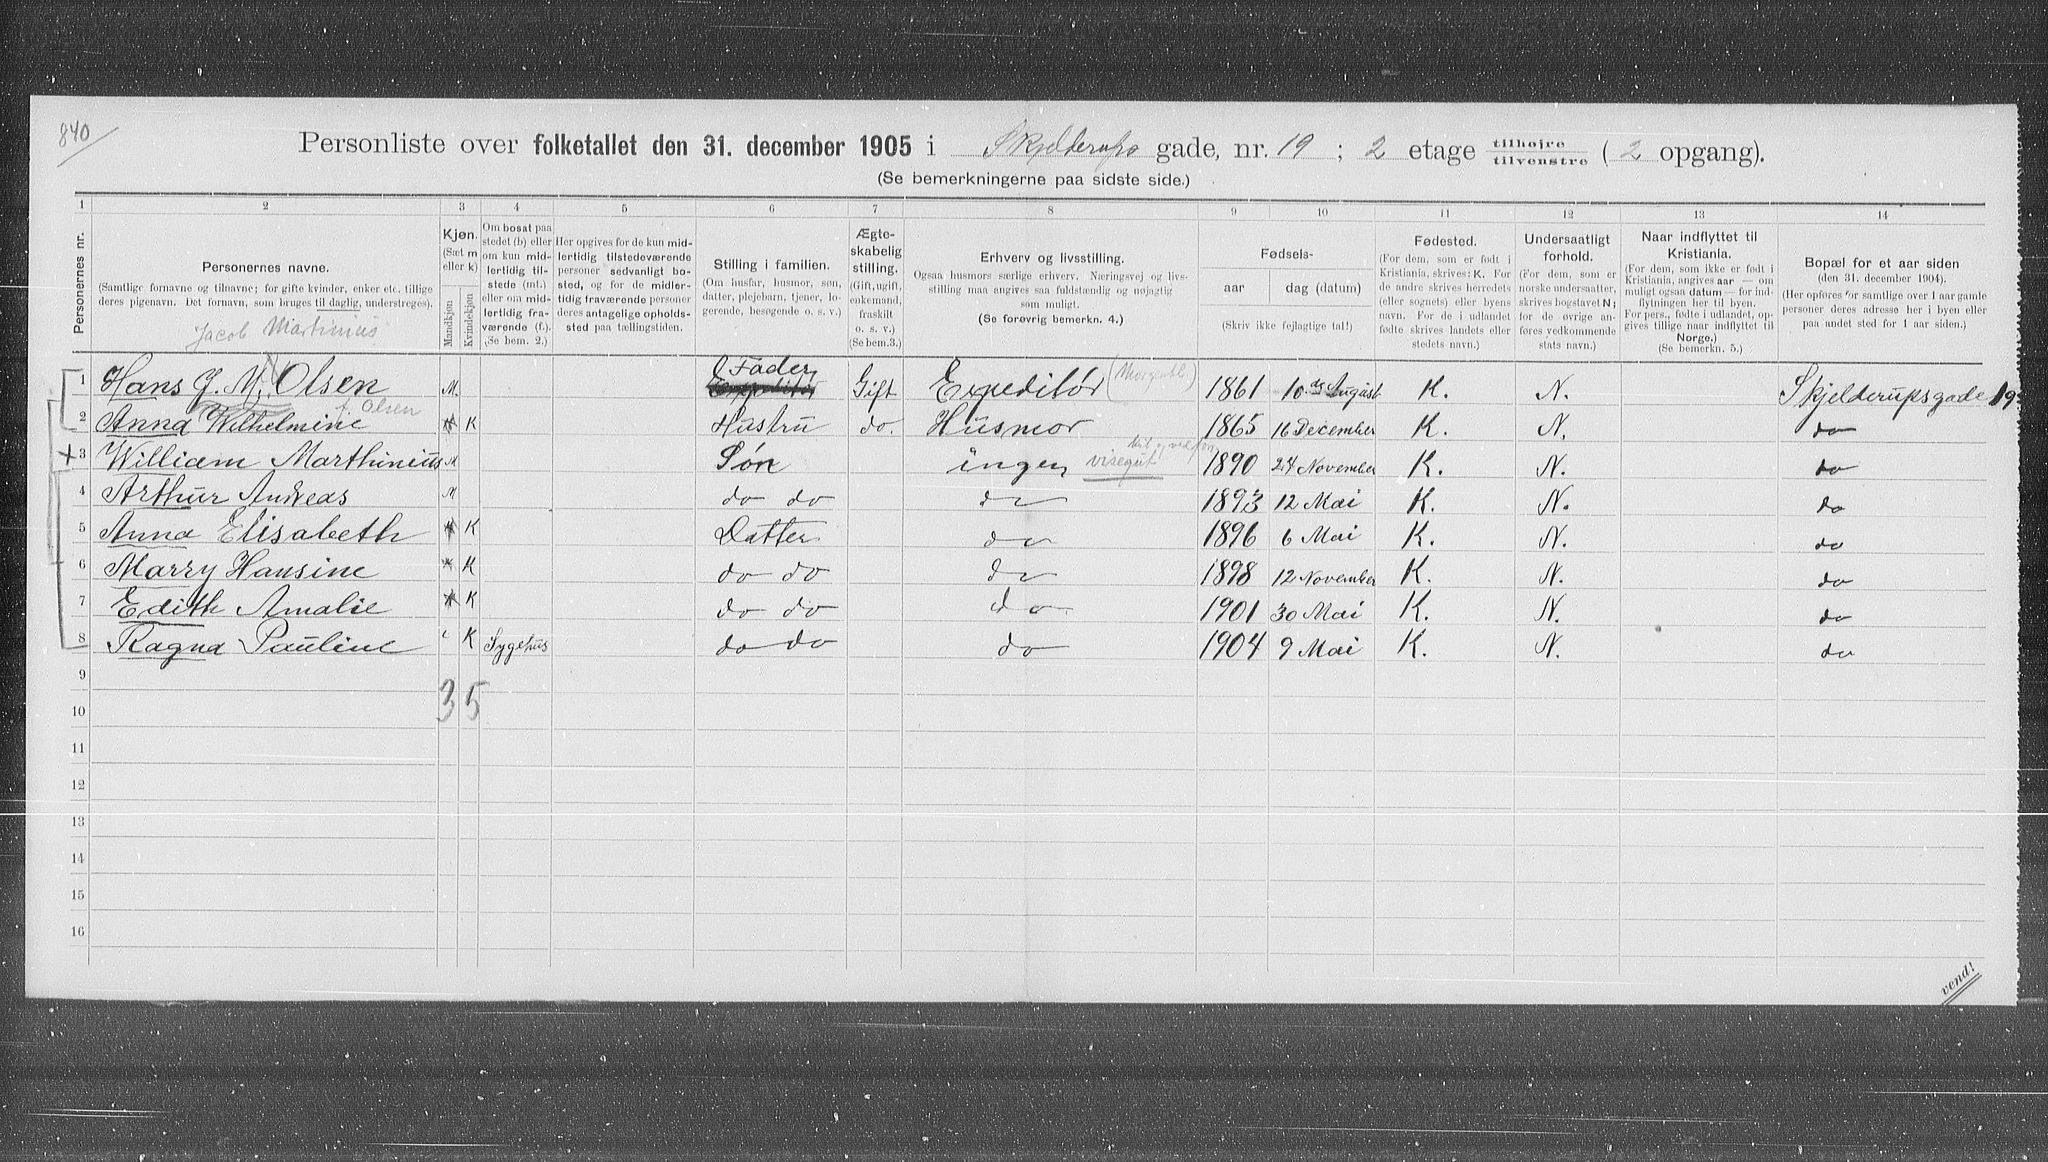 840
Personliste over folketallet den 31. december 1905 i Skjelderups gade, nr. 19 ; 2 etage tilhøjre tilvenstre ( 2 opgang).
(Se bemerkningerne paa sidste side.)
1 2 3 4 5 6 7 8 9 10 11 12 13 14
Personernes nr.
Personernes navne.
(Samtlige fornavne og tilnavne; for gifte kvinder, enker etc. tillige
deres pigenavn. Det fornavn, som bruges til daglig, understreges).
Jacob Martinius
Kjøn.
(Sæt m
eller k)
Mandkjøn
Kvindekjøn
Om bosat paa
stedet (b) eller
om kun mid-
lertidig til-
stede (mt.)
eller om mid-
lertidig fra-
værende (f.).
(Se bem. 2.)
Her opgives for de kun mid-
lertidig tilstedeværende
personer sedvanligt bo-
sted, og for de midler-
tidig fraværende personer
deres antagelige opholds-
sted paa tællingstiden.
Stilling i familien.
(Om husfar, husmor, søn,
datter, plejebarn, tjener, lo-
gerende, besøgende o. s. v.)
Ægte-
skabelig
stilling.
(Gift, ugift,
enkemand,
fraskilt
o. s. v.)
(Se bem.3.)
Erhverv og livsstilling.
Ogsaa husmors særlige erhverv. Næringsvej og livs-
stilling maa angives saa fuldstændig og nøjagtig
som muligt.
(Se forøvrig bemerkn. 4.)
Fødsels-
aar dag (datum)
(Skriv ikke fejlagtige tal!)
Fødested.
(For dem, som er født i
Kristiania, skrives: K. For
de andre skrives herredets
(eller sognets) eller byens
navn. For de i udlandet
fødte skrives landets eller
stedets navn.)
Undersaatligt
forhold.
(For dem, som er
norske undersaatter,
skrives bogstavet N;
for de øvrige an-
føres vedkommende
stats navn.)
Naar indflyttet til
Kristiania.
(For dem, som ikke er født i
Kristiania, angives aar — om
muligt ogsaa datum — for ind-
flytningen her til byen.
For pers., fødte i udlandet, op-
gives tillige naar indflyttet til
Norge.)
(Se bemerkn. 5.)
Bopæl for et aar siden
(den 31. december 1904).
(Her opføres for samtlige over 1 aar gamle
personer deres adresse her i byen eller
paa andet sted for 1 aar siden.)
1 Hans J. M. Olsen M. Fader Gift Expeditør (Morgenbl.) 1861 10de August K. N. Skjelderupsgade 19
2 Anna Wilhelmine f. Olsen K Hustru do. Husmor 1865 16 December K. N. do
3 William Marthinius M Søn ingen visegut 1890 24 November K. N. do
4 Arthur Andreas M do do do 1893 12 Mai K. N. do
5 Anna Elisabeth K Datter do 1896 6 Mai K. N. do
6 Marry Hansine K do do do 1898 12 November K. N. do
7 Edith Amalie K do do do 1901 30 Mai K. N. do
8 Ragna Pauline K Sygehus do do do 1904 9 Mai K. N. do
9
3 5
10
11
12
13
14
15
16
vend!